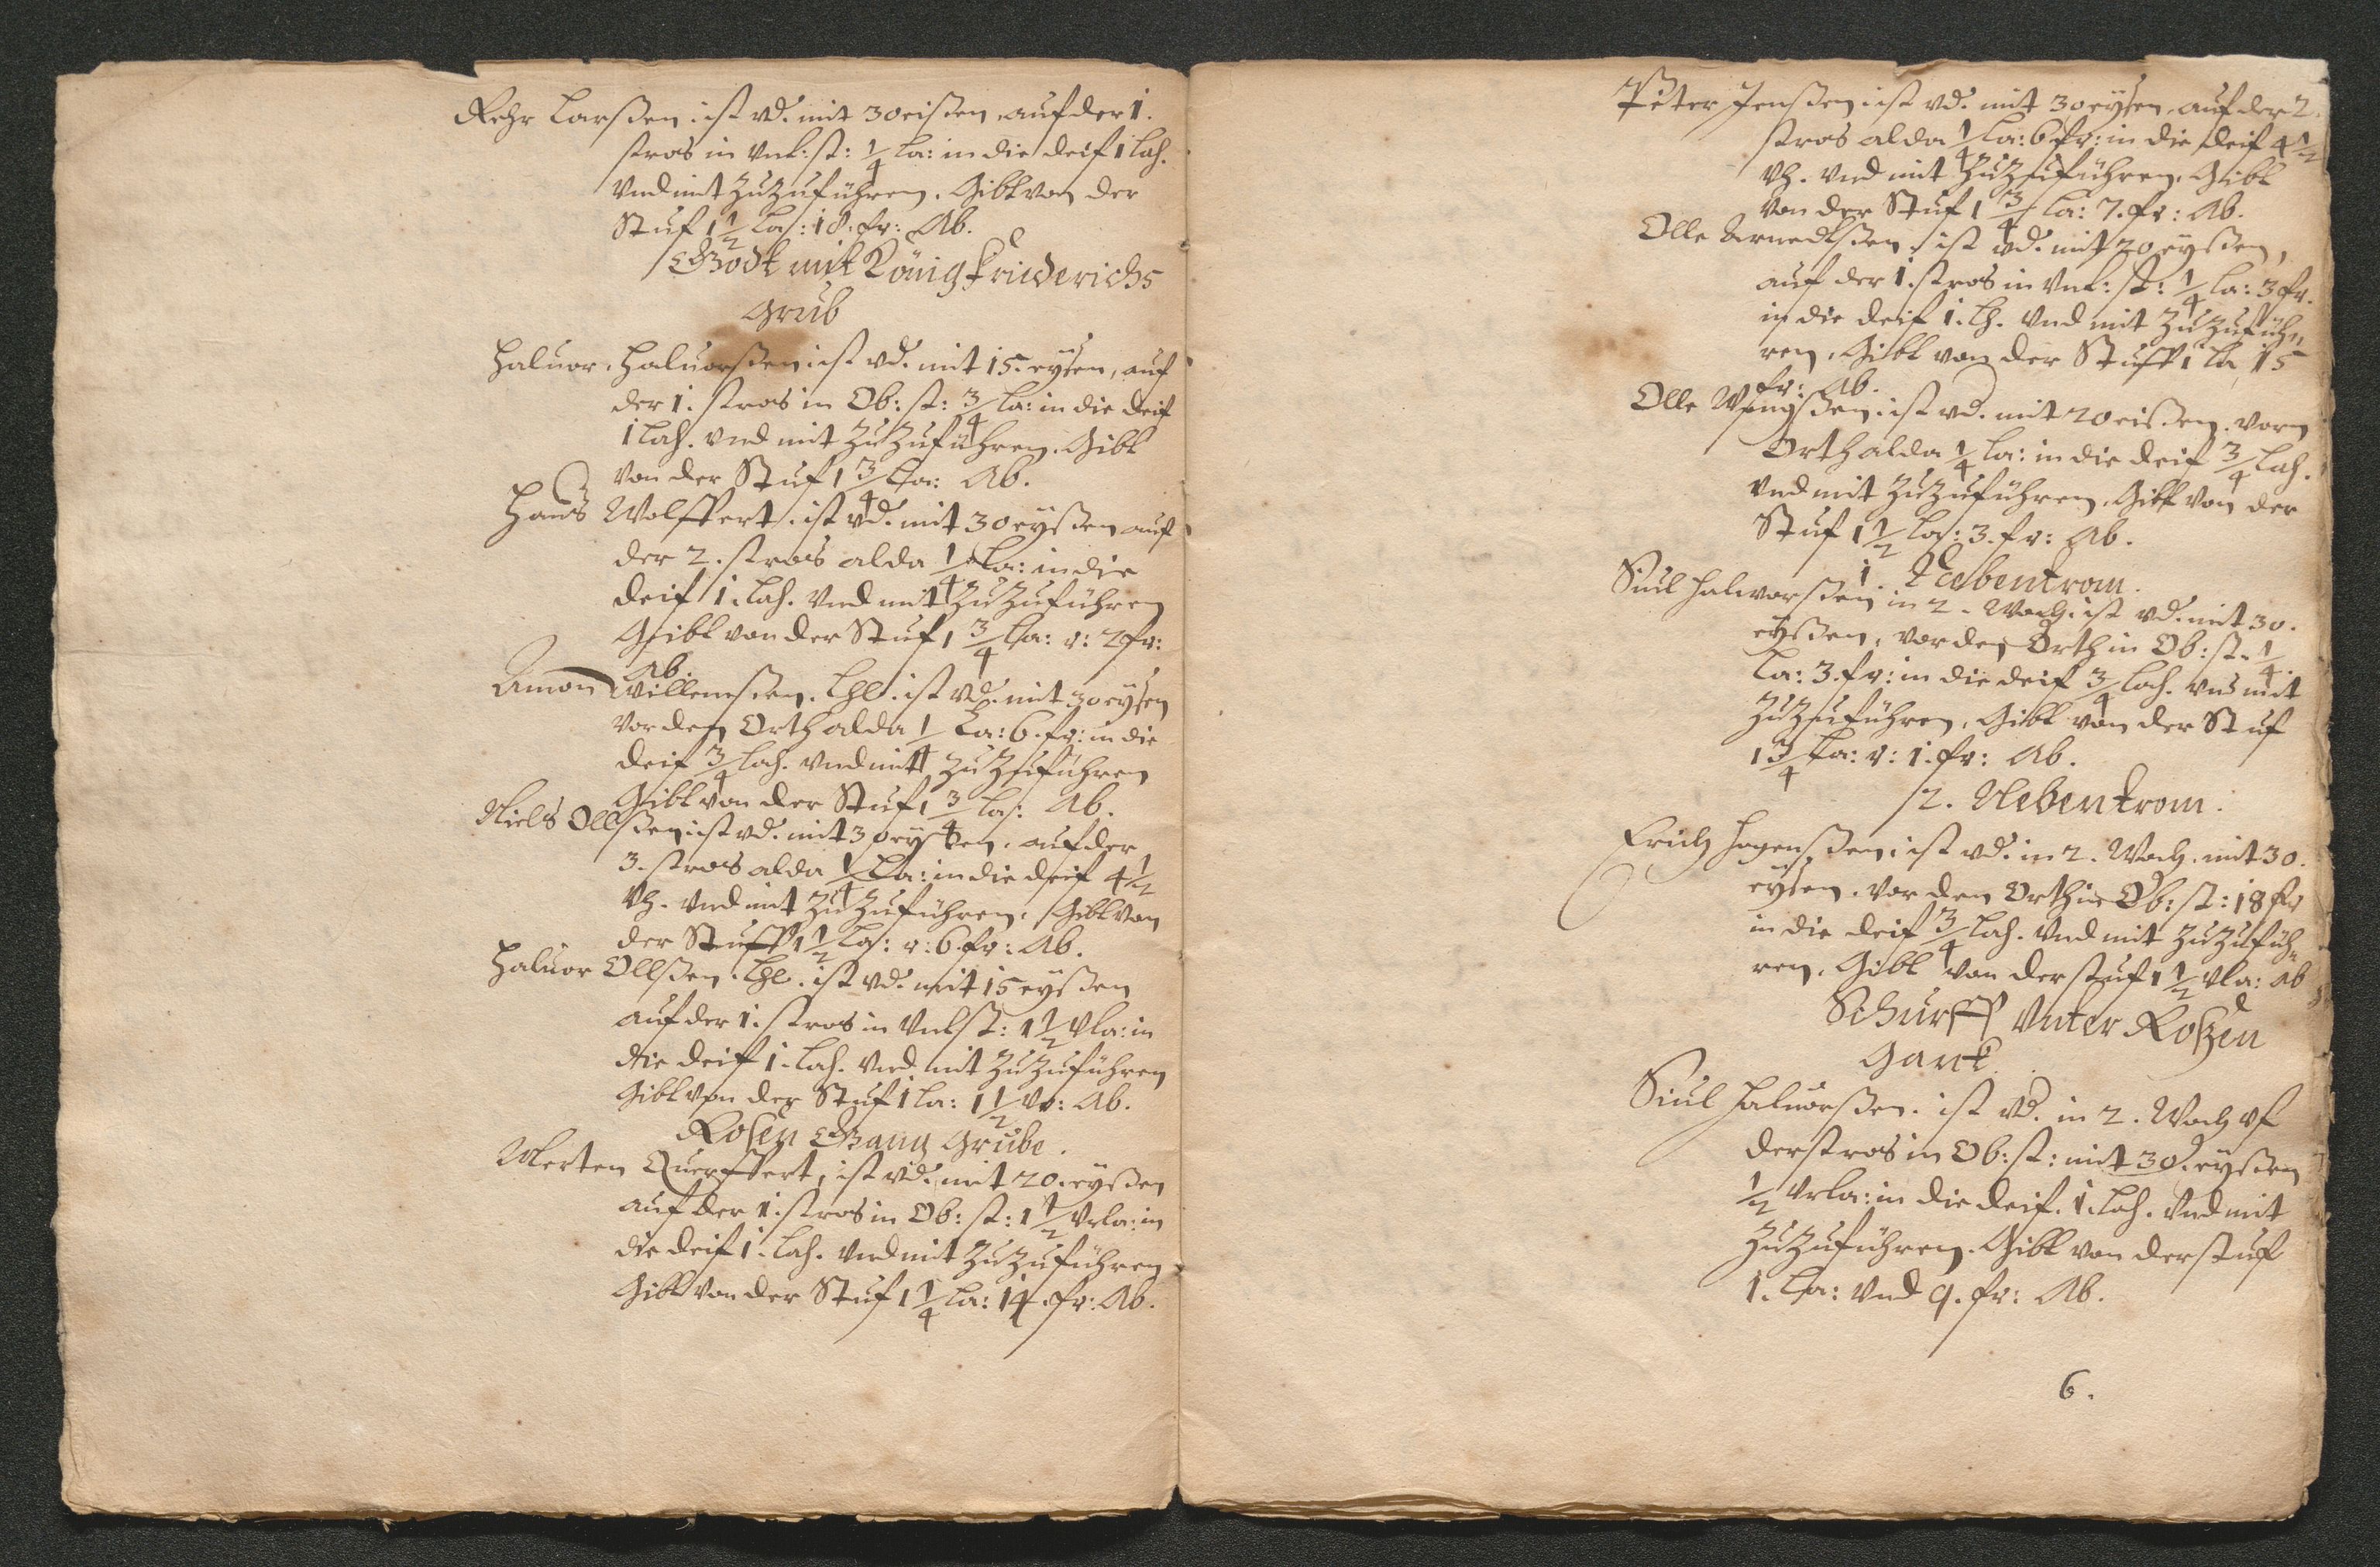 Rehr Larßen. ist vd. mit 30 eißen. auf der 1.
stros in vnt: st: 1/4 La: in die deif 1 Lah.
vnd mit zu zu führen. Gibt von der
Stuf 1 1/2 La: 18. fr: Ab.
Godt mit König Friederichs
Grub
Haluor. Haluorßen. ist vd. mit 15. eyßen, auf
der 1. stros in Ob: st: 3/4 La: in die deif
1 Lah. vnd mit zu zu führen. Gibt
von der Stuf 1 3/4 La: Ab.
Hans Wolffert. ist vd. mit 30 eyßen auf
der 2. stros alda 1/4 La: in die
deif 1. Lah. vnd mit zu zu führen
Gibt von der Stuf 1 3/4 La: v: 2 fr:
Ab.
Amon Willemßen. Lhl. ist vd. mit 30 eyßen
vor den Orth alda 1/4 La: 6. fr: in die
deif 3/4 Lah. vnd mit zu zu führen
Gibt von der Stuf 1 3/4 La: Ab.
Niels Ollßen. ist vd. mit 30 eyßen. auf der
3. stros alda 1/4 La: in die deif 4 1/2
vh. vnd mit zu zu führen. Gibt von
der Stuff 1 1/2 La: v: 6. fr: Ab.
Haluor Ollßen. Lhl. ist vd. mit 15 eyßen
auf der 1. stros in vnt st: 1 1/2 vla: in
die deif 1. Lah. vnd mit zu zu führen
Gibt von der Stuf 1 La: 1 1/2 vr: Ab.
Rosen Gang Grube.
Merten Querffert, ist vd. mit 20. eyßen
auf der 1. stros in Ob: st: 1 1/2 vrla: in
die deif 1. Lah. vnd mit zu zu führen
Gibt von der Stuf 1 1/4 La: 14. fr: Ab.
Peter Jenßen. ist vd. mit 30 eyßen. auf der 2.
stros alda 1/4 La: 6 fr: in die deif 4 1/2
vh. vnd mit zu zu führen. Gibt
von der Stuf 1 3/4 La: 7. fr: Ab.
Olle Arnedtßen. ist vd. mit 20 eyßen,
auf der 1. stros in vnt: st: 1/4 La: 3 fr.
in die deif 1. Lh. vnd mit zu zu füh-
ren. Gibt von der Stuff 1 La 15
fr: Ab.
Olle ist vd. mit 20 eißen. vorn
Orth alda 1/4 La: in die deif 3/4 Lah.
vnd mit zu zu führen. Gibt von der
Stuf 1 1/2 La: 3. fr: Ab.
1. Nebentrom.
Siul Halworßen in 2. Woch. ist vd. mit 30.
eyßen. vor den Orth in Ob: st. 1/4
La: 3. fr: in die deif 3/4 Lah. vnd mit
zu zu führen. Gibt von der Stuf
1 3/4 La: v: 1. fr: Ab.
2. Nebentrom.
Erich Hagenßen. ist vd. in 2. Woch. mit 30.
eyßen. vor den Orth in Ob: st: 18 fr
in die deif 3/4 Lah. vnd mit zu zu füh-
ren. Gibt von der stuf 1 1/2 vla: Ab
Schurff vnter Roßen
Gank.
Siul Haluorßen. ist vd. in 2. Woch vf
der stros in Ob: st: mit 30. eyßen
1/2 vrla: in die deif. 1. Lah. vnd mit
zu zu führen. Gibt von der stuf
1. La: vnd 9. fr: Ab.
6.